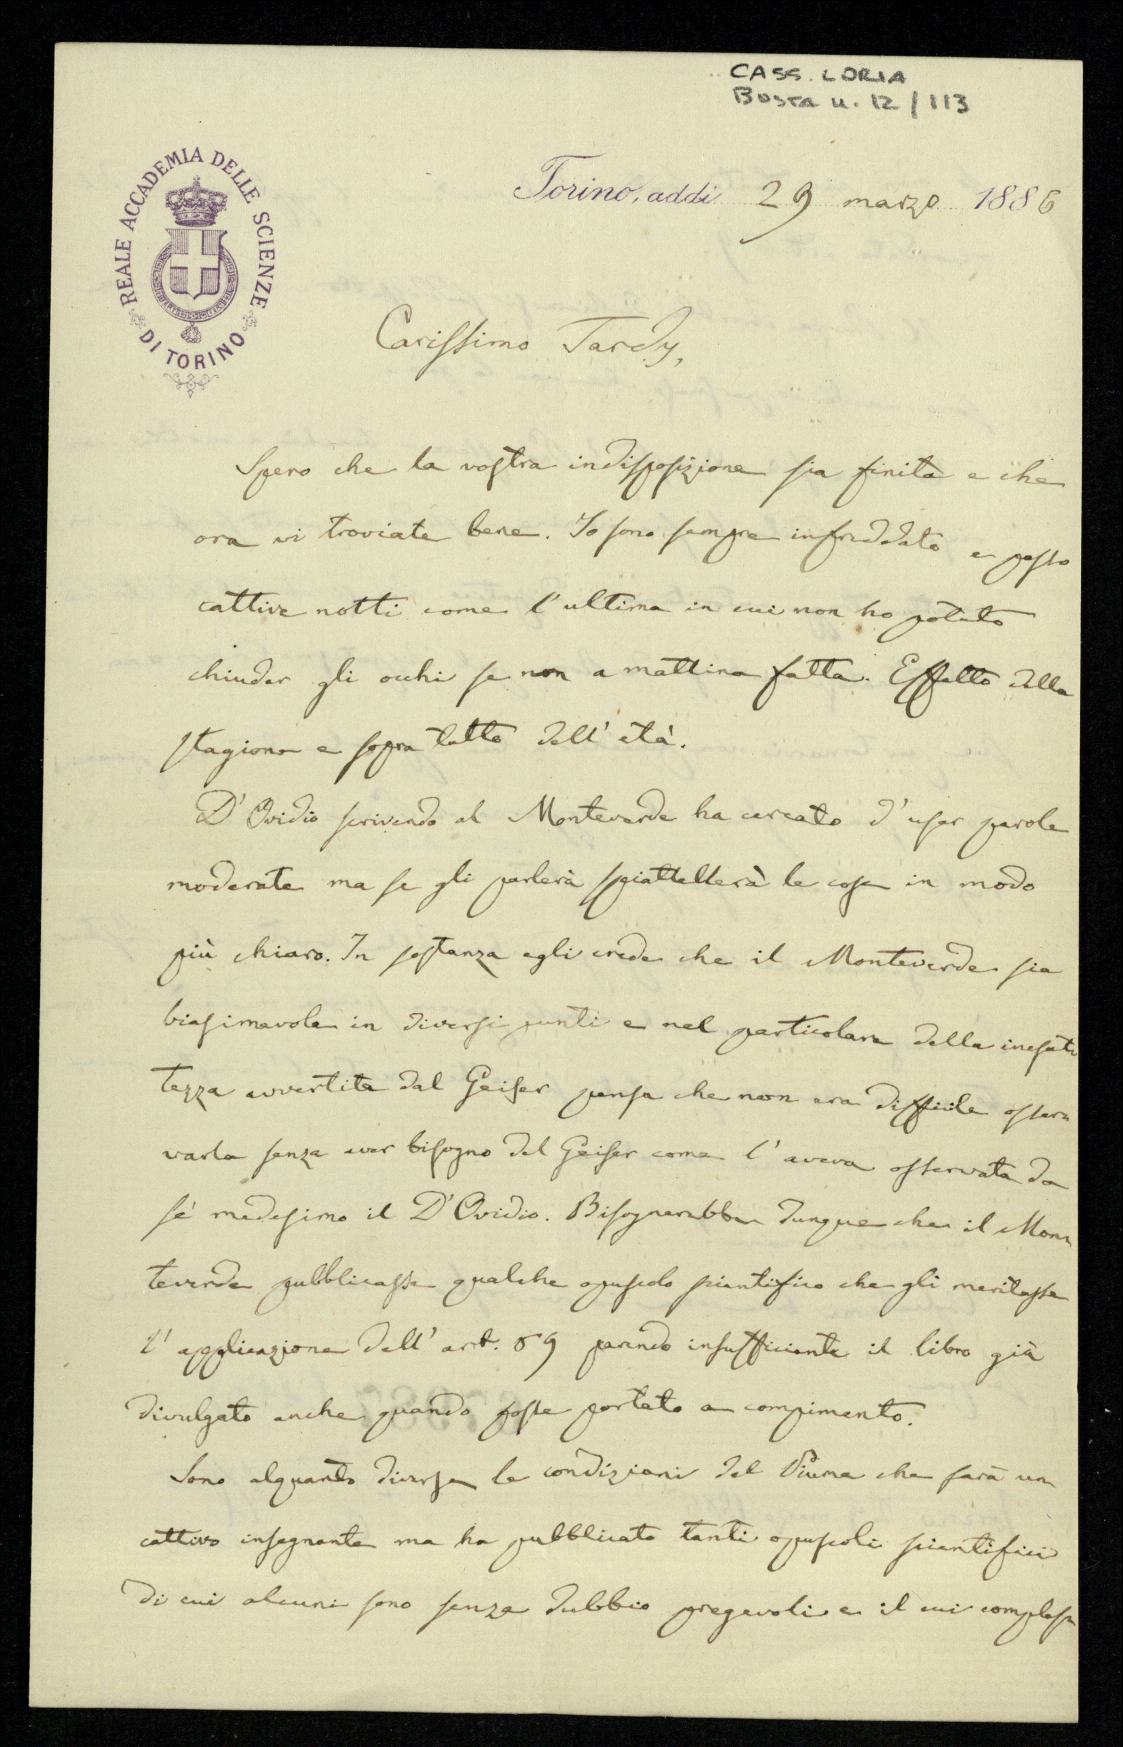 CASS. LORIA
Busta n. 12/113
REALE ACCADEMIA DELLE SCIENZE
DI TORINO
Torino, addì 29 marzo 1886
Carissimo Tardy,
Spero che la vostra indisposizione sia finita e che
ora vi troviate bene. Io sono sempre infreddato e passo
cattive notti come l'ultima in cui non ho potuto
chiuder gli occhi se non a mattina fatta. Effetto della
stagione e sopra tutto dell'età.
D'Ovidio scrivendo al Monteverde ha cercato d'usar parole
moderate ma se gli parlerà spiattellerà le cose in modo
più chiaro. In sostanza egli crede che il Monteverde sia
biasimavole in diversi punti e nel particolare della inesat
tezza avvertita dal Geiser pensa che non era difficile osser
varla senza aver bisogno del Geiser come l'aveva osservata da
sè medesimo il D'Ovidio. Bisognerebbe dunque che il Mon
teverde pubblicasse qualche opuscolo scientifico che gli meritasse
l'applicazione dell'art. 69 parendo insufficiente il libro già
divulgato anche quando fosse portato a compimento.
Sono alquanto diverse le condizioni del Piuma che sarà un
cattivo insegnante ma ha pubblicato tanti opuscoli scientifici
di cui alcuni sono senza dubbio pregevoli e il cui comples